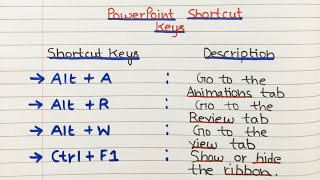 PowerPoint Shortcut
Keys
Shortcut Keys Description
→ Alt + A : Go to the
Animations tab
→ Alt + R : Go to the
Review tab
→ Alt + W : Go to the
view tab
→ Ctrl + F1 : Show or hide
the ribbon.